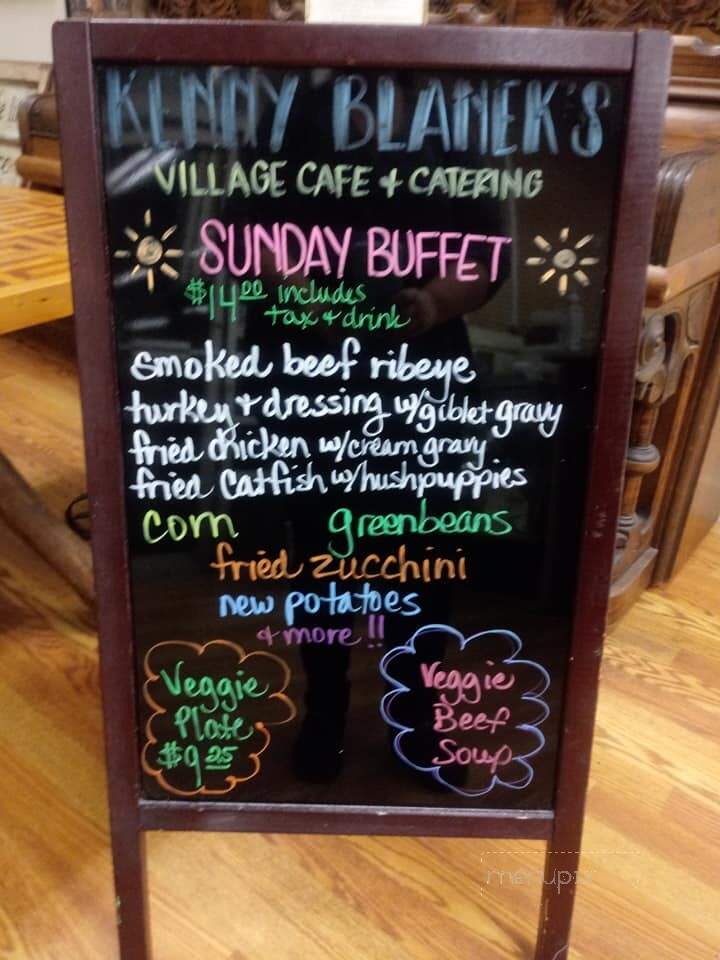 KENNY BLANEK'S
VILLAGE CAFE + CATERING
SUNDAY BUFFET
$14.00 includes
tax + drink
smoked beef ribeye
turkey + dressing w/giblet gravy
fried chicken w/cream gravy
fried catfish w/hushpuppies
corn greenbeans
fried zucchini
new potatoes
+ more!!
Veggie
Plate
$9.25
Veggie
Beef
Soup